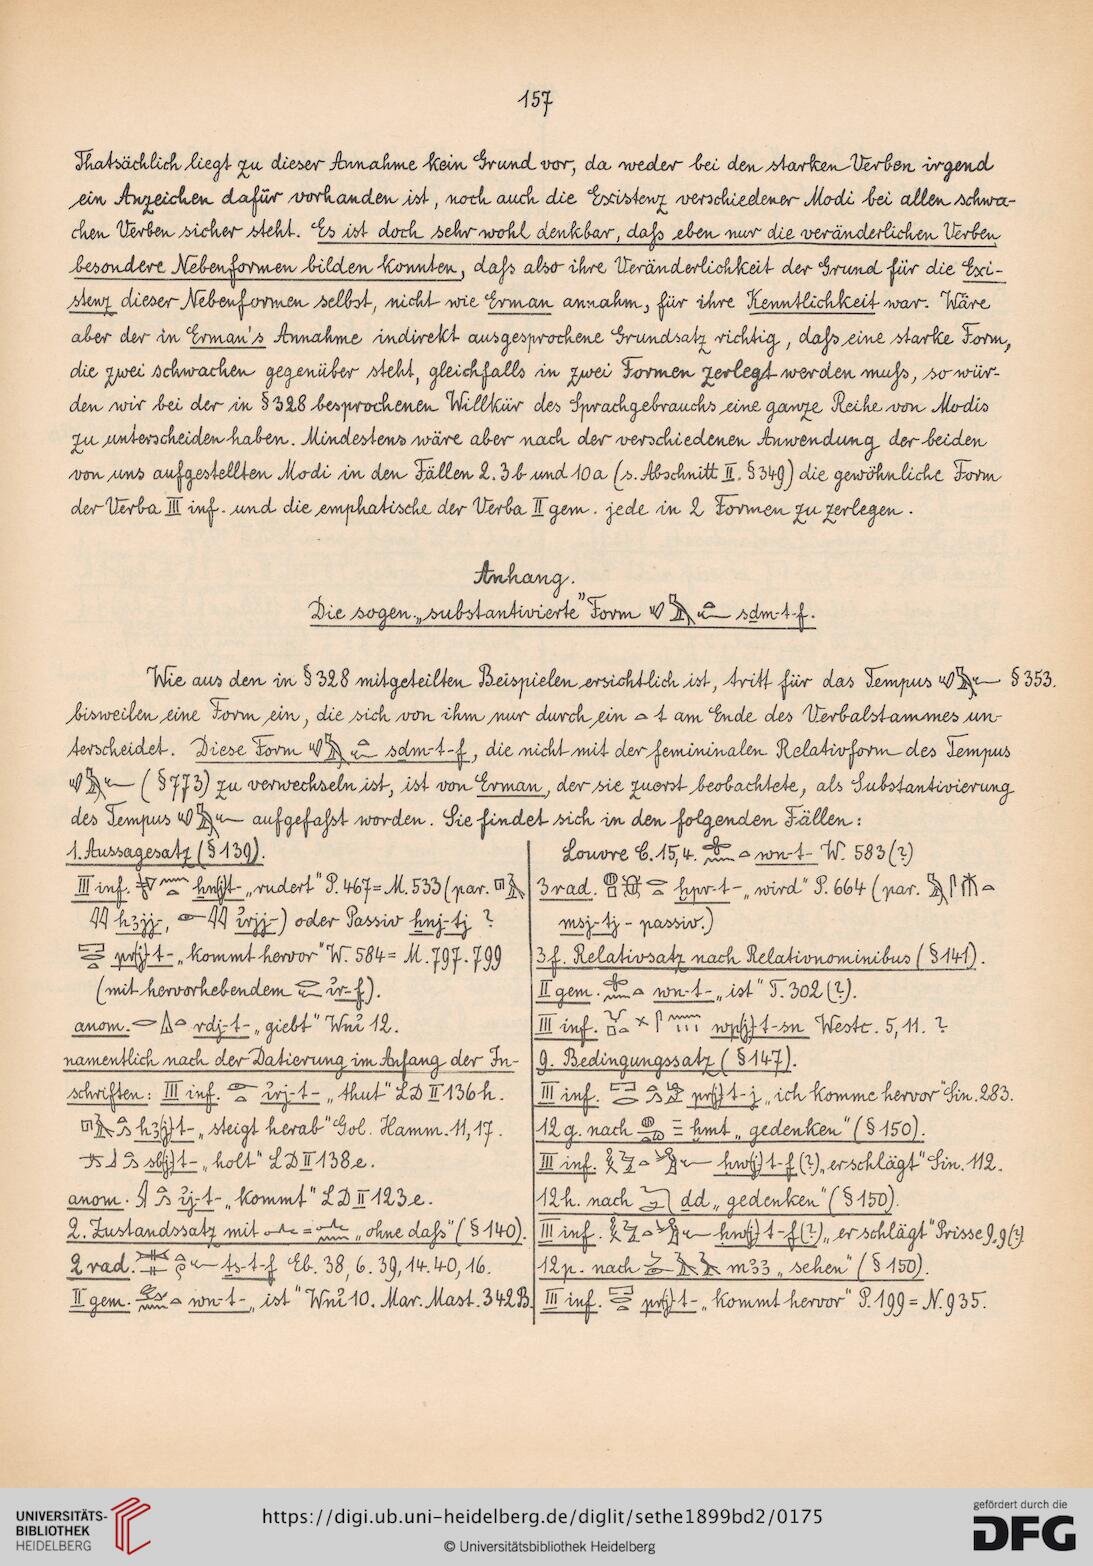 157
Thatsächlich liegt zu dieser Annahme kein Grund vor, da weder bei den starken Verben irgend
ein Anzeichen dafür vorhanden ist, noch auch die Existenz verschiedener Modi bei allen schwa-
chen Verben sicher steht. Es ist doch sehr wohl denkbar, daſs eben nur die veränderlichen Verben
besondere Nebenformen bilden konnten, daſs also ihre Veränderlichkeit der Grund für die Exi-
stenz dieser Nebenformen selbst, nicht wie Erman annahm, für ihre Kenntlichkeit war. Wäre
aber der in Erman's Annahme indirekt ausgesprochene Grundsatz richtig, daſs eine starke Form,
die zwei schwachen gegenüber steht, gleichfalls in zwei Formen zerlegt werden muſs, so wür-
den wir bei der in § 328 besprochenen Willkür des Sprachgebrauchs eine ganze Reihe von Modis
zu unterscheiden haben. Mindestens wäre aber nach der verschiedenen Anwendung der beiden
von uns aufgestellten Modi in den Fällen 2. 3b und 10a (s. Abschnitt II. § 349) die gewöhnliche Form
der Verba III inf. und die emphatische der Verba II gem. jede in 2 Formen zu zerlegen.
Anhang.
Die sogen. „substantivierte" Form sḏm-t-f.
Wie aus den in § 328 mitgeteilten Beispielen ersichtlich ist, tritt für das Tempus § 353.
bisweilen eine Form ein, die sich von ihm nur durch ein t am Ende des Verbalstammes un-
terscheidet. Diese Form sḏm-t-f, die nicht mit der femininalen Relativform des Tempus
(§ 773) zu verwechseln ist, ist von Erman, der sie zuerst beobachtete, als Substantivierung
des Tempus aufgefaſst worden. Sie findet sich in den folgenden Fällen:
1. Aussagesatz (§ 139).
III inf. ẖn(j)t- „rudert" P. 467 = M. 533 (par.
hꜣjj-, ꞽrjj-) oder Passiv ẖnj-tj ?
pr(j)t- „kommt hervor" W. 584 = M. 797. 799
(mit hervorhebendem ꞽr-f).
anom. rdj-t- „giebt" Wnꞽ 12.
namentlich nach der Datierung im Anfang der In-
schriften: III inf. ꞽrj-t- „thut" LD II 136h.
hꜣ(j)t- „steigt herab" Gol. Hamm. 11, 17.
sb(j)t- „holt" LD II 138e.
anom. ꞽj-t- „kommt" LD II 123e.
2. Zustandssatz mit = „ohne daſs" (§ 140).
2 rad. ṯs-t-f Eb. 38, 6. 39, 14. 40, 16.
II gem. wn-t- „ist" Wnꞽ 10. Mar. Mast. 342 B.
Louvre C. 15, 4. wn-t- W. 583 (?)
3 rad. ḫpr-t- „wird" P. 664 (par.
msj-tj - passiv.)
3f. Relativsatz nach Relativnominibus (§ 141).
II gem. wn-t- „ist" T. 302 (?).
III inf. wp(j)t-sn Westc. 5, 11. ?
9. Bedingungssatz (§ 147).
III inf. pr(j)t-j „ich komme hervor" Sin. 283.
12g. nach ḫmt „gedenken" (§ 150).
III inf. ḥw(j)t-f (?) „er schlägt" Sin. 112.
12h. nach ḏd „gedenken" (§ 150).
III inf. ḥw(j)t-f (?) „er schlägt" Prisse 9, 9 (?)
12p. nach mꜣꜣ „sehen" (§ 150).
III inf. pr(j)t- „kommt hervor" P. 199 = N. 935.
UNIVERSITÄTS-
BIBLIOTHEK
HEIDELBERG
https://digi.ub.uni-heidelberg.de/diglit/sethe1899bd2/0175
© Universitätsbibliothek Heidelberg
gefördert durch die
DFG